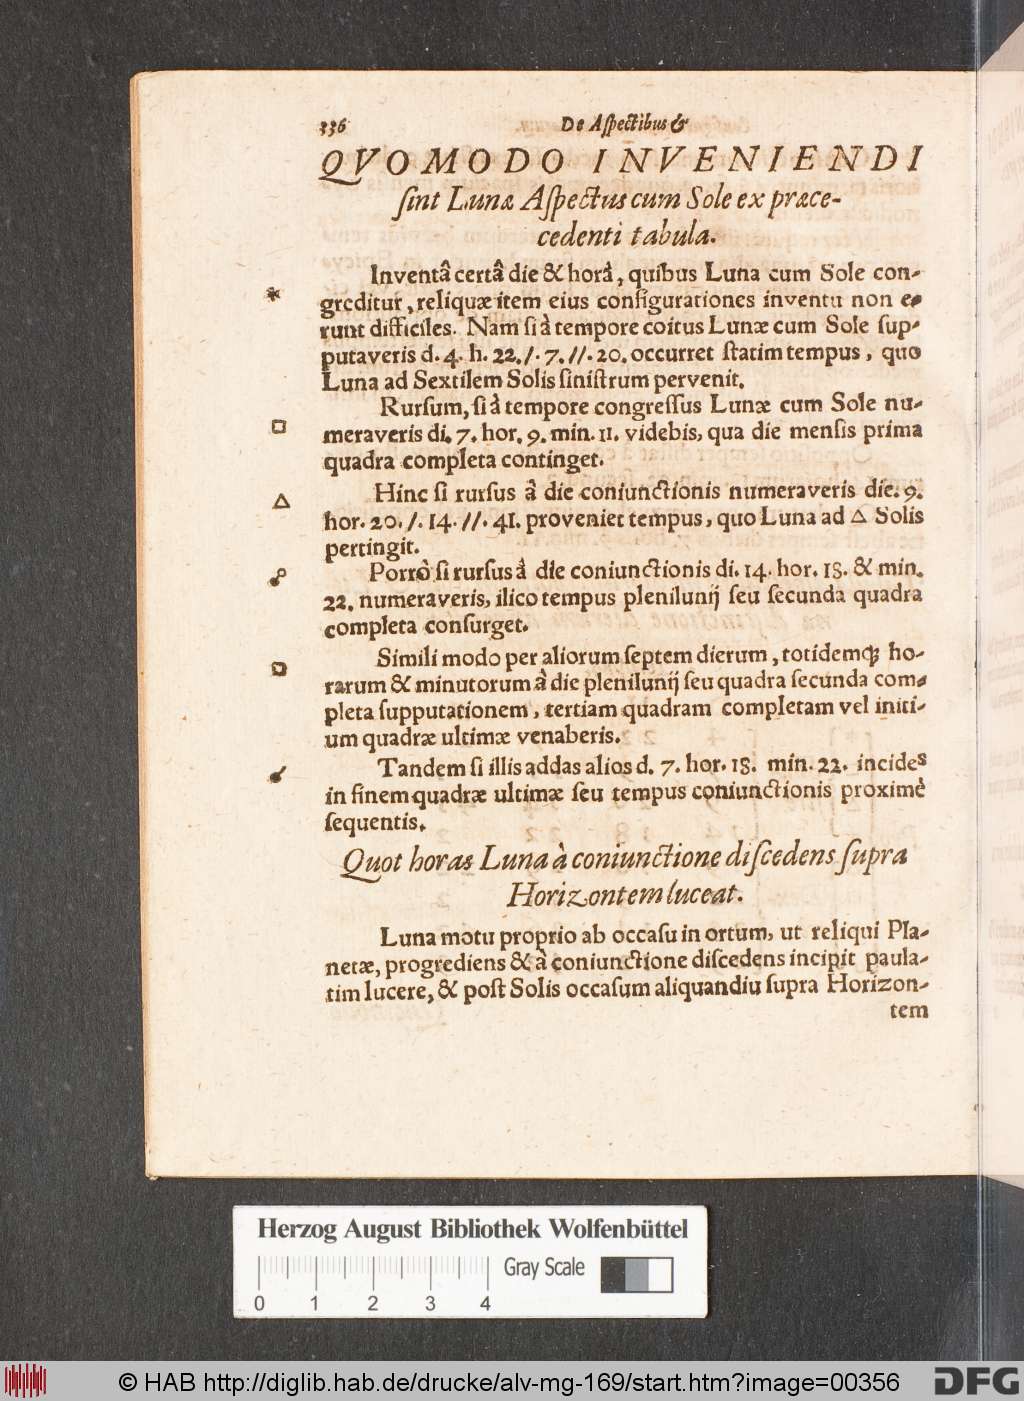 336 De Aſpectibus &
QVOMODO INVENIENDI
ſint Lunæ Aſpectus cum Sole ex præce-
cedenti tabula.
Inventâ certâ die & horâ, quibus Luna cum Sole con-
greditur, reliquæ item eius configurationes inventu non e-
runt difficiles. Nam ſi à tempore coitus Lunæ cum Sole ſup-
putaveris d. 4. h. 22. /. 7. //. 20. occurret ſtatim tempus, quo
Luna ad Sextilem Solis ſiniſtrum pervenit.
Rurſum, ſi à tempore congreſſus Lunæ cum Sole nu-
□ meraveris di. 7. hor. 9. min. 11. videbis, qua die menſis prima
quadra completa continget.
△ Hinc ſi rurſus â die coniunctionis numeraveris die. 9.
hor. 20. /. 14. //. 41. proveniet tempus, quo Luna ad △ Solis
pertingit.
☍ Porrò ſi rurſus à die coniunctionis di. 14. hor. 18. & min.
22. numeraveris, ilico tempus plenilunij ſeu ſecunda quadra
completa conſurget.
□ Simili modo per aliorum ſeptem dierum, totidemq; ho-
rarum & minutorum à die plenilunij ſeu quadra ſecunda com-
pleta ſupputationem, tertiam quadram completam vel initi-
um quadræ ultimæ venaberis.
☌ Tandem ſi illis addas alios d. 7. hor. 18. min. 22. incides
in finem quadræ ultimæ ſeu tempus coniunctionis proximè
ſequentis.
Quot horas Luna à coniunctione diſcedens ſupra
Horizontem luceat.
Luna motu proprio ab occaſu in ortum, ut reliqui Pla-
netæ, progrediens & à coniunctione diſcedens incipit paula-
tim lucere, & poſt Solis occaſum aliquandiu ſupra Horizon-
tem
Herzog August Bibliothek Wolfenbüttel
Gray Scale
0 1 2 3 4
© HAB http://diglib.hab.de/drucke/alv-mg-169/start.htm?image=00356
DFG